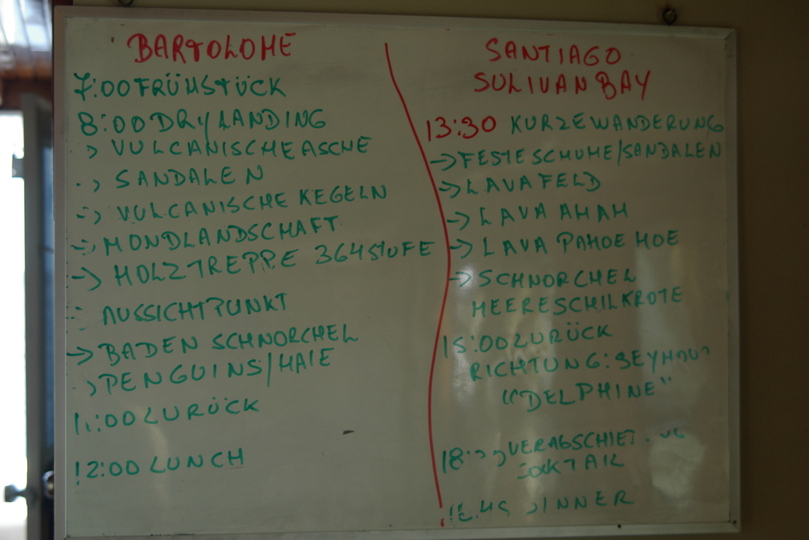 BARTOLOME
7:00 FRÜHSTÜCK
8:00 DRY LANDING
VULCANISCHE ASCHE
SANDALEN
VULCANISCHE KEGELN
MONDLANDSCHAFT
→ HOLZTREPPE 364 STUFE
AUSSICHTPUNKT
→ BADEN SCHNORCHEL
PENGUINS/HAIE
11:00 ZURÜCK
12:00 LUNCH
SANTIAGO
SULIVAN BAY
13:30 KURZE WANDERUNG
→ FESTE SCHUHE/SANDALEN
→ LAVA FELD
→ LAVA AHAH
→ LAVA PAHOE HOE
→ SCHNORCHEL
MEERESCHILKROTE
15:00 ZURÜCK
RICHTUNG: SEYMOU
"DELPHINE"
COCKTAIL
DINNER